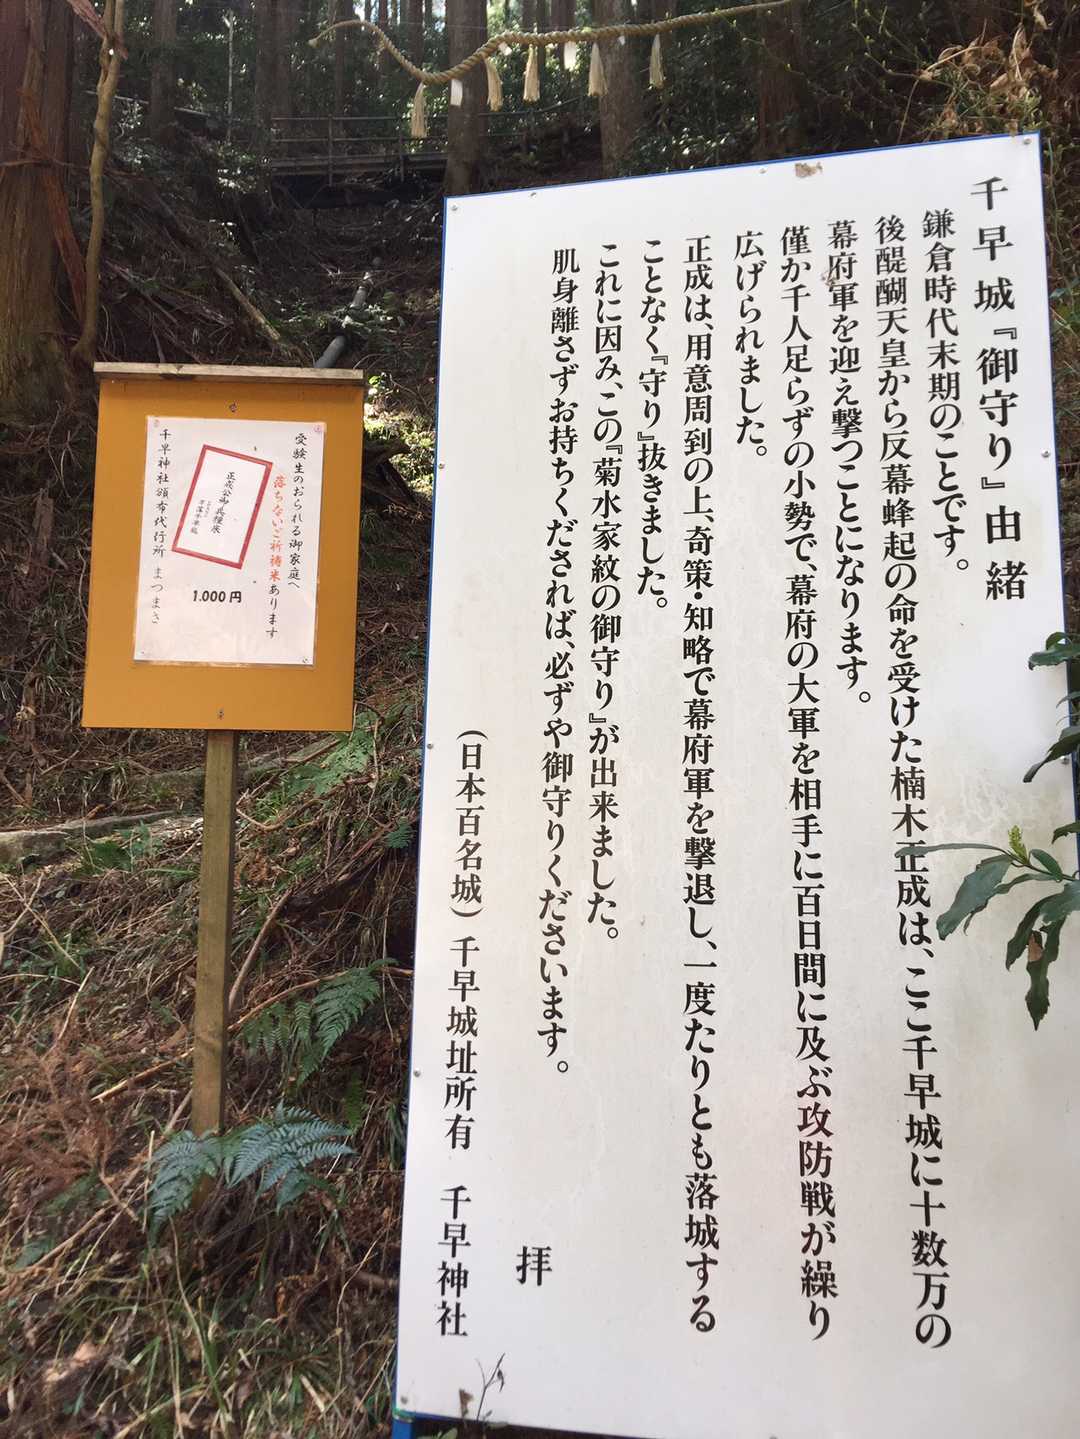 千早城『御守り』由緒
鎌倉時代末期のことです。
後醍醐天皇から反幕蜂起の命を受けた楠木正成は、ここ千早城に十数万の
幕府軍を迎え撃つことになります。
僅か千人足らずの小勢で、幕府の大軍を相手に百日間に及ぶ攻防戦が繰り
広げられました。
正成は、用意周到の上、奇策・知略で幕府軍を撃退し、一度たりとも落城する
ことなく『守り』抜きました。
これに因み、この『菊水家紋の御守り』が出来ました。
肌身離さずお持ちくだされば、必ずや御守りくださいます。
拝
(日本百名城) 千早城址所有 千早神社
受験生のおられる御家庭へ
落ちないご祈祷米あります
正成公御兵糧米
千早神社頒布代行所 まつまさ
1.000円